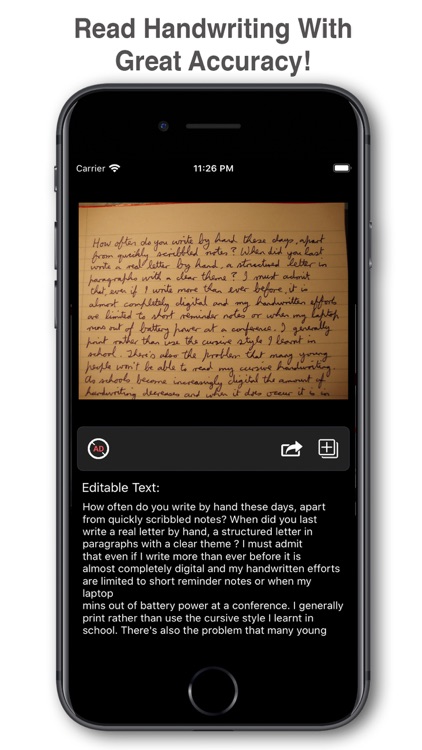 Read Handwriting With
Great Accuracy!
Carrier 11:26 PM
How often do you write by hand these days, apart
from quickly scribbled notes? When did you last
write a real letter by hand, a structured letter in
paragraphs with a clear theme? I must admit
that even if I write more than ever before, it is
almost completely digital and my handwritten efforts
are limited to short reminder notes or when my laptop
runs out of battery power at a conference. I generally
print rather than use the cursive style I learnt in
school. There's also the problem that many young
people won't be able to read my cursive handwriting.
As schools become increasingly digital the amount of
handwriting decreases and when it does occur it is in
AD
Editable Text:
How often do you write by hand these days, apart
from quickly scribbled notes? When did you last
write a real letter by hand, a structured letter in
paragraphs with a clear theme ? I must admit
that even if I write more than ever before it is
almost completely digital and my handwritten efforts
are limited to short reminder notes or when my
laptop
mins out of battery power at a conference. I generally
print rather than use the cursive style I learnt in
school. There's also the problem that many young